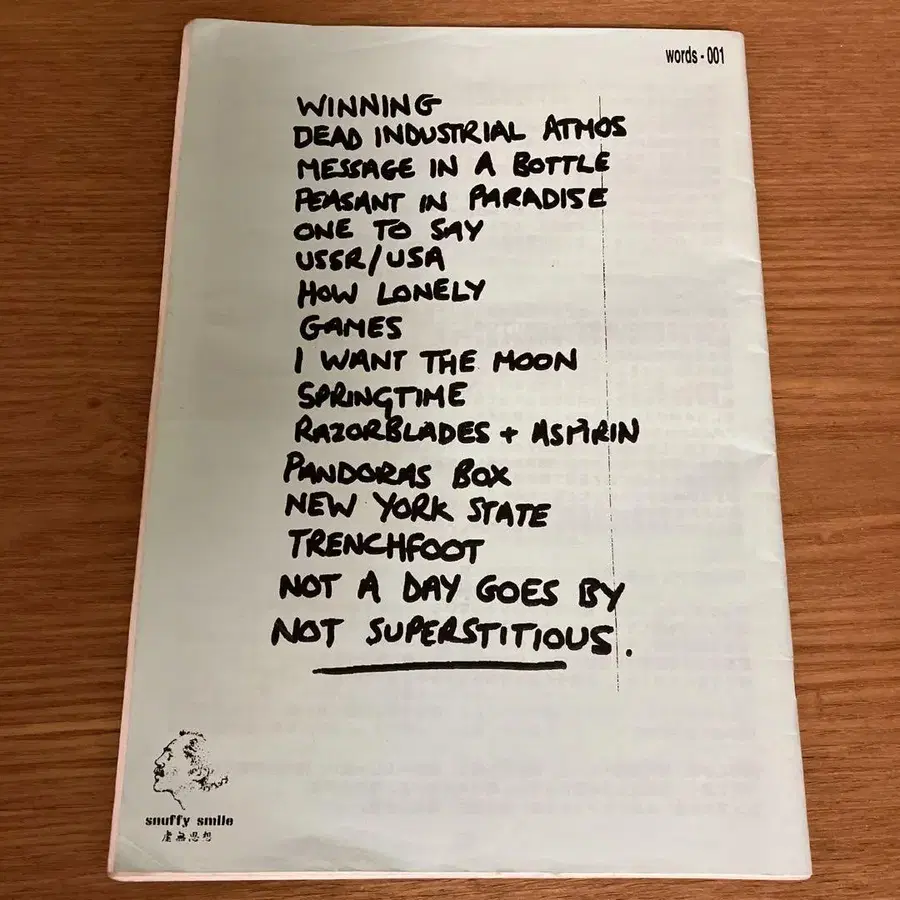 words - 001
WINNING
DEAD INDUSTRIAL ATMOS
MESSAGE IN A BOTTLE
PEASANT IN PARADISE
ONE TO SAY
USSR/USA
HOW LONELY
GAMES
I WANT THE MOON
SPRINGTIME
RAZORBLADES + ASPIRIN
PANDORAS BOX
NEW YORK STATE
TRENCHFOOT
NOT A DAY GOES BY
NOT SUPERSTITIOUS.
snuffy smile
虚無思想